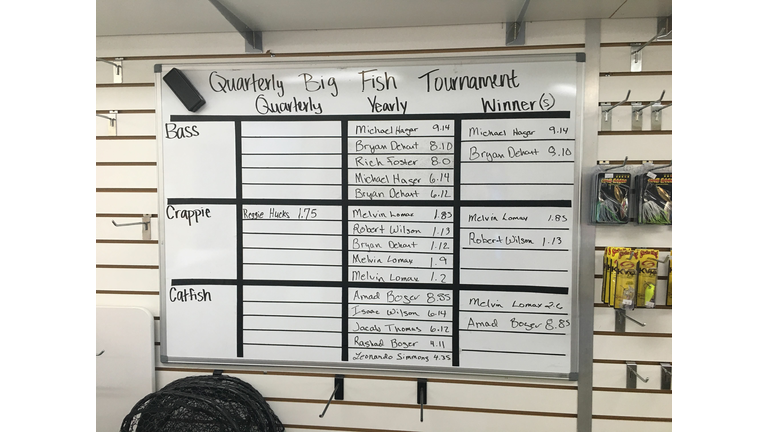 Quarterly Big Fish Tournament
Quarterly Yearly Winner(s)
Bass
Michael Hagar 9.14 Michael Hagar 9.14
Bryan Dehart 8.10 Bryan Dehart 8.10
Rich Foster 8.0
Michael Hager 6.14
Bryan Dehart 6.12
Crappie Reggie Hucks 1.75 Melvin Lomax 1.85 Melvin Lomax 1.85
Robert Wilson 1.13 Robert Wilson 1.13
Bryan Dehart 1.12
Melvin Lomax 1.9
Melvin Lomax 1.2
Catfish Amad Bozer 8.85 Melvin Lomax
Isaac Wilson 6.14 Amad Bozer 8.85
Jacob Thomas 6.12
Rashad Bozer 4.11
Leonando Simmons 4.35